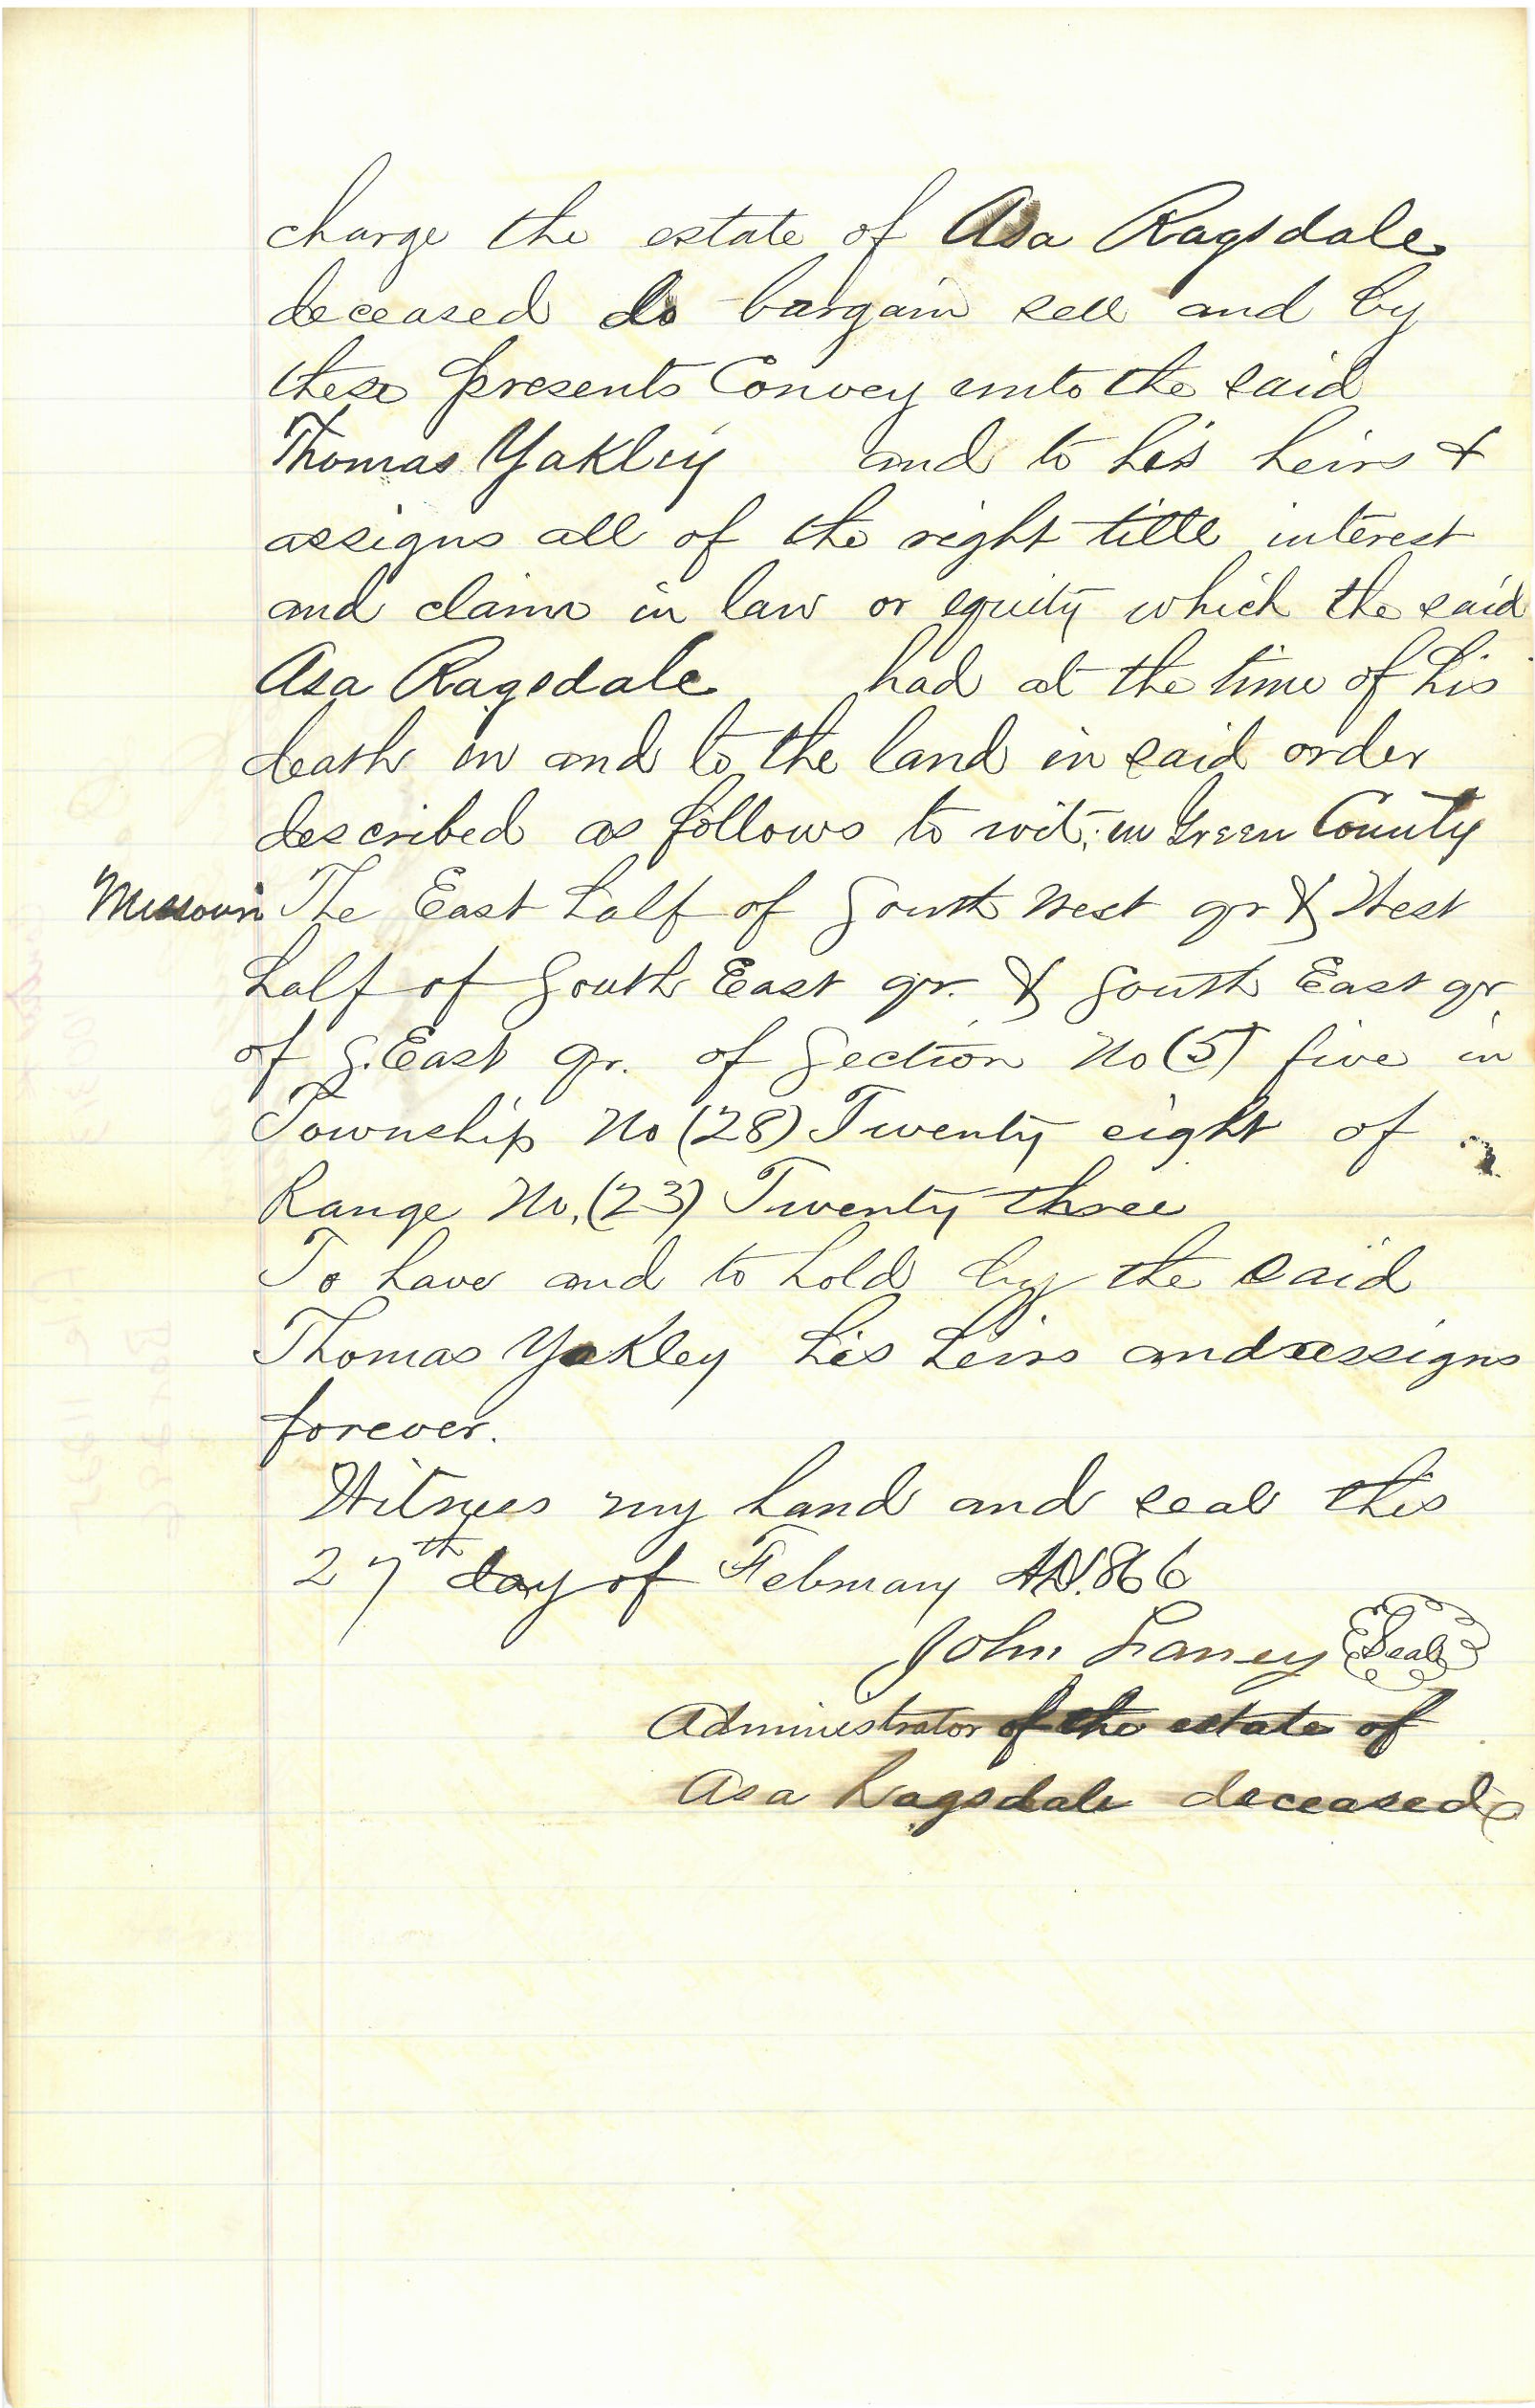 charge the estate of Asa Ragsdale
deceased do bargain sell and by
these presents Convey unto the said
Thomas Yakley and to his heirs &
assigns all of the right title interest
and claim in law or equity which the said
Asa Ragsdale had at the time of his
death in and to the land in said order
described as follows to wit; in Green County
Missouri The East half of South West qr & West
half of South East qr. & South East qr
of S.East qr. of Section No (5) five in
Township No (28) Twenty eight of
Range No. (23) Twenty three
To have and to hold by the said
Thomas Yakley his heirs and assigns
forever.
Witness my hand and seal this
27th day of February AD.1866
John Laney Seal
Administrator of the estate of
Asa Ragsdale deceased